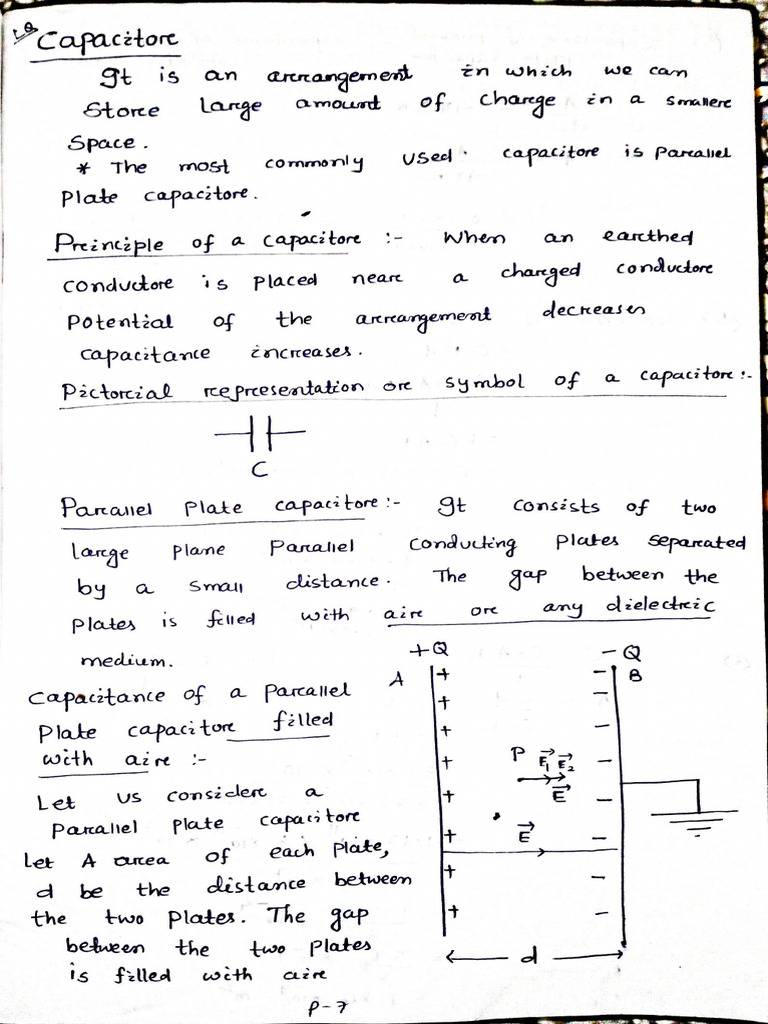 Capacitore
It is an arrangement in which we can
store large amount of charge in a smallere
space.
* The most commonly used capacitore is parallel
plate capacitore.
Principle of a capacitore :- When an earthed
conductore is placed neare a charged conductore
potential of the arrangement decreases
capacitance increases.
Pictorcial representation ore symbol of a capacitore :-
C
Parallel plate capacitore :- It consists of two
large plane parallel conducting plates separated
by a small distance. The gap between the
plates is filled with aire ore any dielectric
medium.
Capacitance of a parallel
plate capacitore filled
with aire :-
Let us considere a
parallel plate capacitore
Let A area of each plate,
d be the distance between
the two plates. The gap
between the two plates
is filled with aire
+Q -Q
A B
P E₁ E₂
E
E
d
P-7